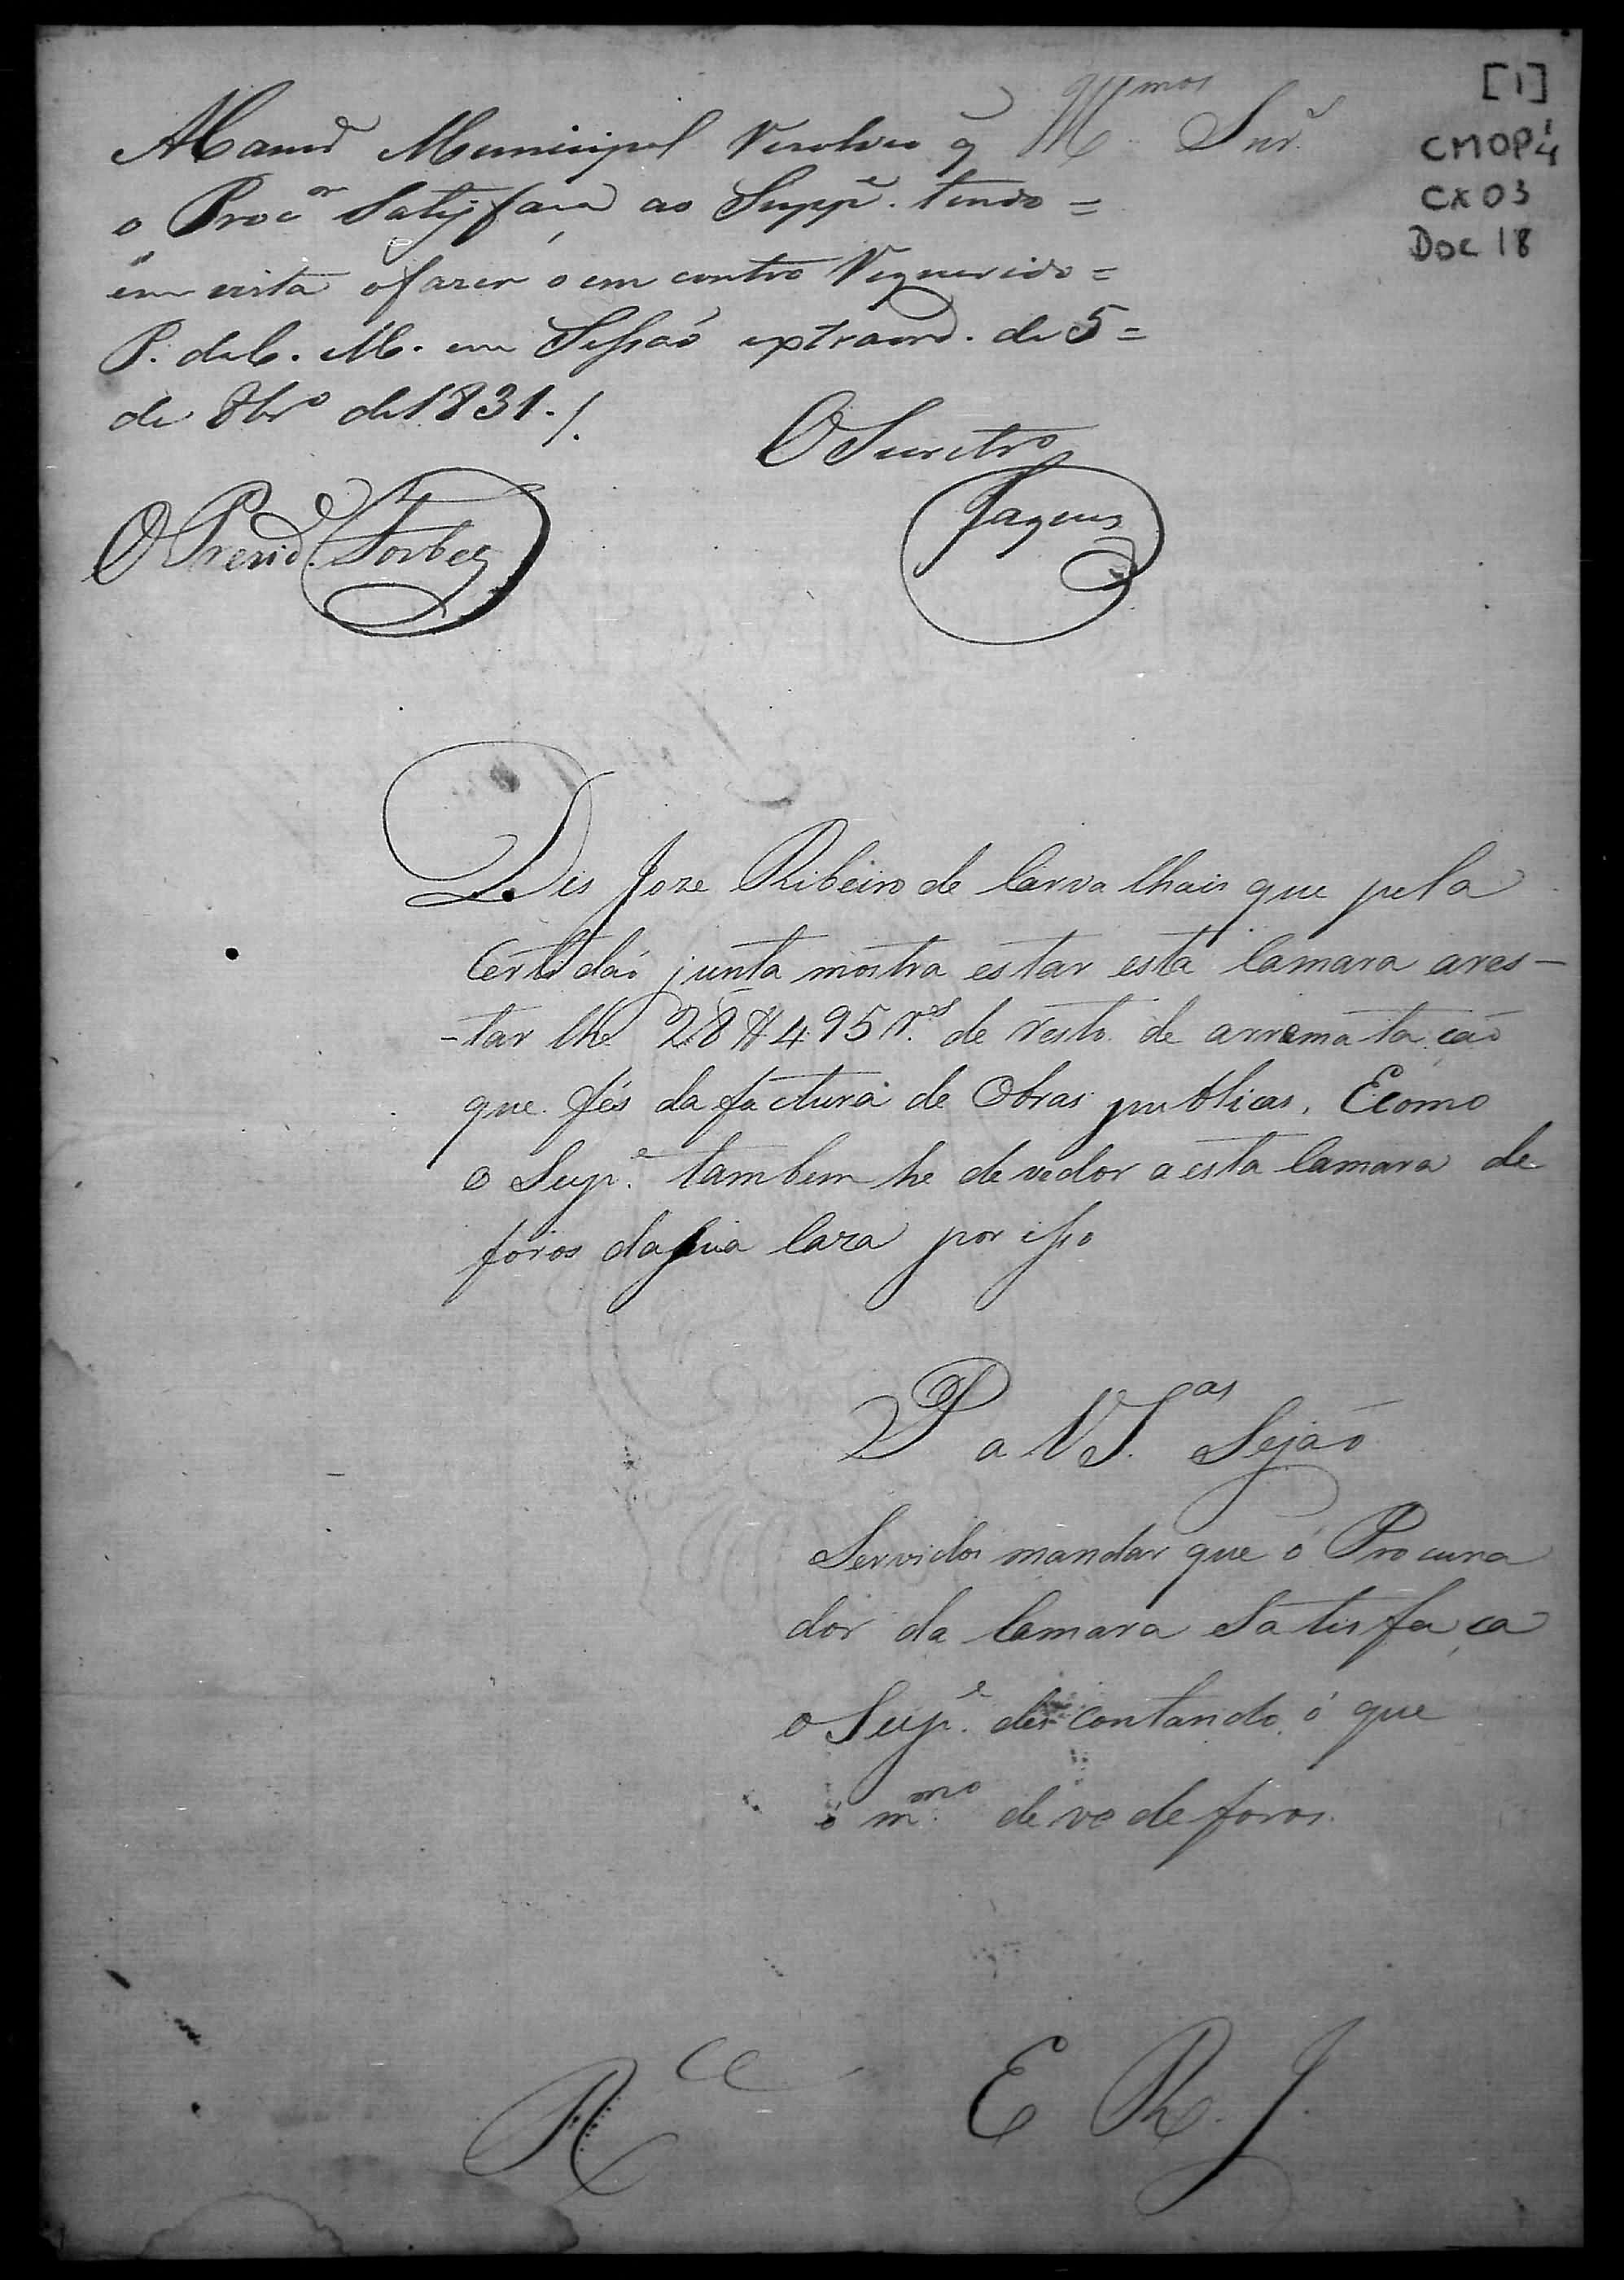 [1]
CMOP 1/4
CX 03
Doc 18
Illmos Snrs
A Camrª Municipal Resolveo q̃
o Procor Satisfaça ao Suppe. tendo =
em vista o fazer o em contro Requerido =
P. da C. M. em Sessaõ extraord. de 5 =
de 8bro de 1831./.
O Secretro
O Presid.e Forbes
Dis Joze Ribeiro de Carvalhais que pela
Certidaõ junta mostra estar esta Camara ares-
-tar lhe 28$495 rs. de resto de arrematacaõ
que fés da factura de Obras publicas. E como
o Supe. tambem he devedor a esta Camara de
foros da sua Caza por isso
P a V S.as Sejaõ
Servidos mandar que o Procura
dor da Camara Satisfaça
o Supe. descontando o que
o mmo. deve de foros.
E R J.
R ce